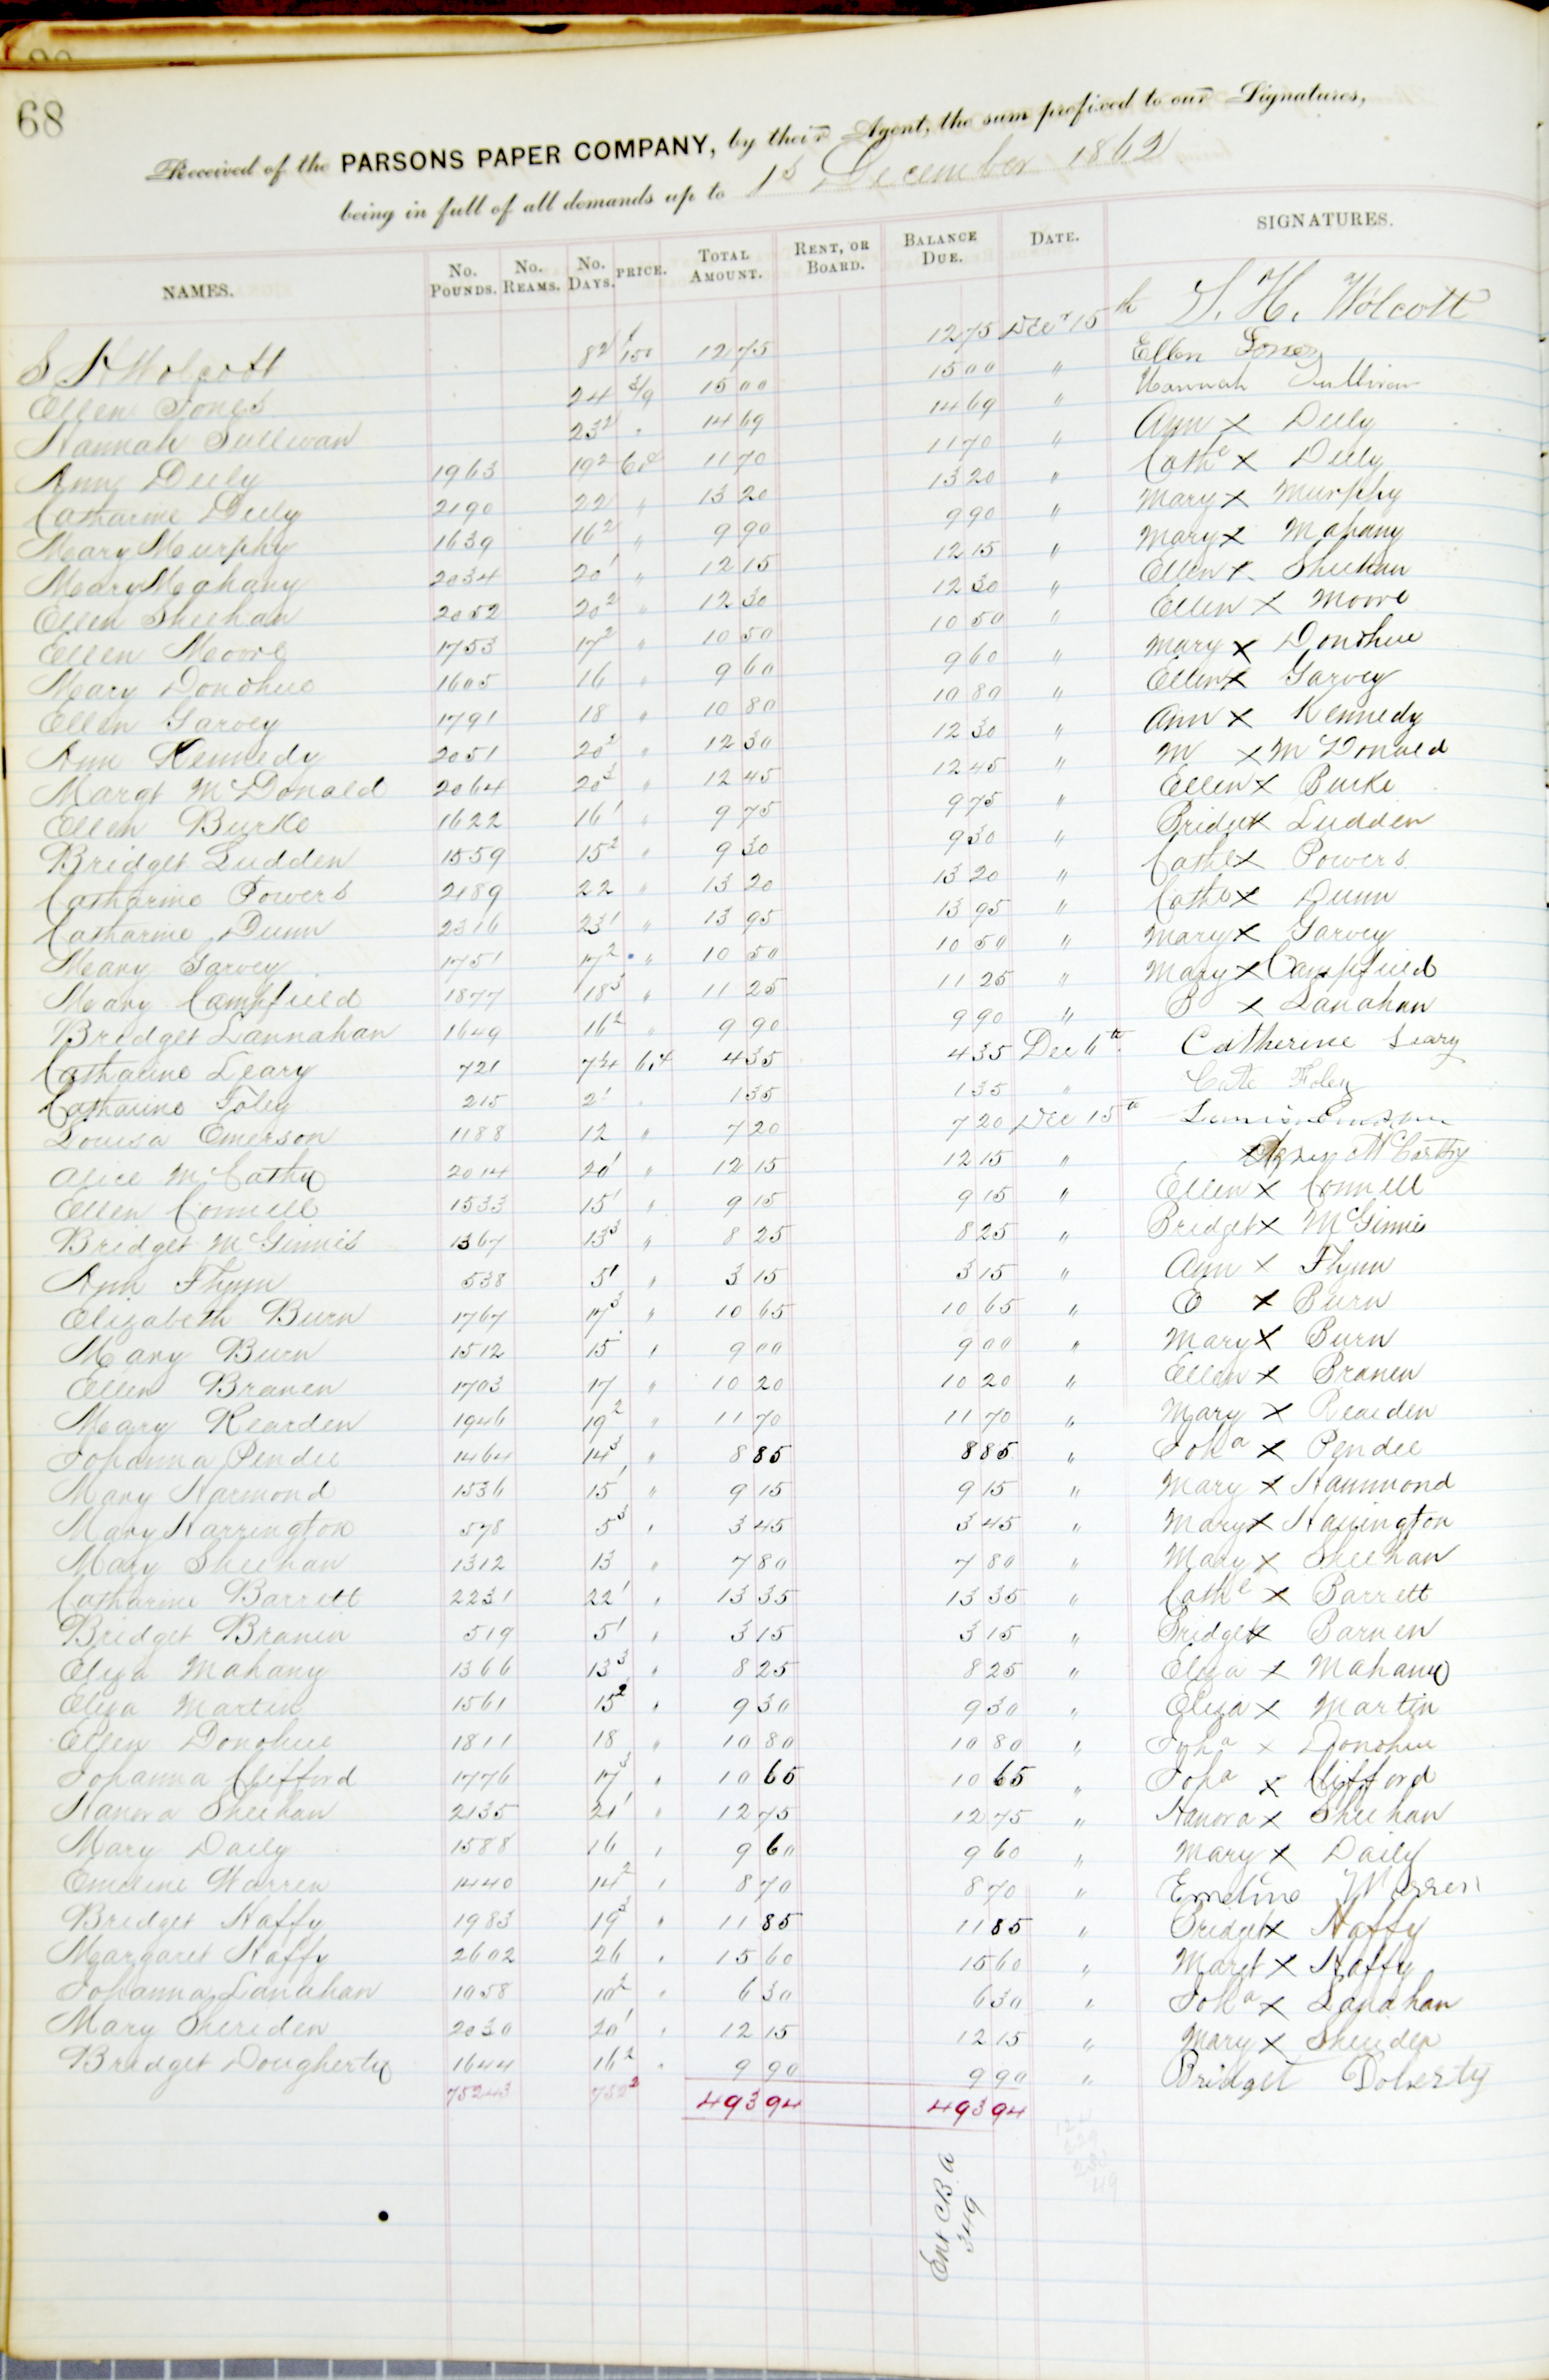 68
Received of the PARSONS PAPER COMPANY, by their Agent, the sum prefixed to our Signatures,
being in full of all demands up to 1st December 1862
NAMES. No. POUNDS. No. REAMS. No. DAYS. PRICE. TOTAL AMOUNT. RENT, OR BOARD. BALANCE DUE. DATE. SIGNATURES.
S H Wolcott 8 2 1/150 12 75 12 75 Decr 15th S. H. Wolcott
Ellen Jones 24 3/9 15 00 15 00 " Ellen Jones
Hannah Sullivan 23 2 " 14 69 14 69 " Hannah Sullivan
Ann Deely 1963 19 2 6.4 11 70 11 70 " Ann X Deely
Catharine Deely 2190 22 " 13 20 13 20 " Cathe X Deely
Mary Murphy 1639 16 2 " 9 90 9 90 " Mary X Murphy
Mary Mahany 2034 20 1 " 12 15 12 15 " Mary X Mahany
Ellen Sheehan 2052 20 2 " 12 30 12 30 " Ellen X Sheehan
Ellen Moore 1753 17 2 " 10 50 10 50 " Ellen X Moore
Mary Donohue 1605 16 " 9 60 9 60 " Mary X Donohue
Ellen Garvey 1791 18 " 10 80 10 80 " Ellen X Garvey
Ann Kennedy 2051 20 2 " 12 30 12 30 " Ann X Kennedy
Margt McDonald 2064 20 3 " 12 45 12 45 " M X McDonald
Ellen Burke 1622 16 1 " 9 75 9 75 " Ellen X Burke
Bridget Ludden 1559 15 2 " 9 30 9 30 " Bridget X Ludden
Catharine Powers 2189 22 " 13 20 13 20 " Cathe X Powers
Catharine Dunn 2316 23 1 " 13 95 13 95 " Cathe X Dunn
Mary Garvey 1751 17 2 " 10 50 10 50 " Mary X Garvey
Mary Campfield 1877 18 3 " 11 25 11 25 " Mary X Campfield
Bridget Lannahan 1649 16 2 " 9 90 9 90 " B X Lanahan
Catharine Leary 721 7 1/4 6.4 4 35 4 35 Dec 6th Catherine Leary
Catharine Foley 215 2 1 " 1 35 1 35 " Cate Foley
Louisa Emerson 1188 12 " 7 20 7 20 Dec 15th Louisa Emerson
Alice McCathy 2014 20 1 " 12 15 12 15 " X McCarthy
Ellen Connell 1533 15 1 " 9 15 9 15 " Ellen X Connell
Bridget McGinnis 1367 13 3 " 8 25 8 25 " Bridget X McGinnis
Ann Flynn 538 5 1 " 3 15 3 15 " Ann X Flynn
Elizabeth Burn 1767 17 3 " 10 65 10 65 " E X Burn
Mary Burn 1512 15 " 9 00 9 00 " Mary X Burn
Ellen Branen 1703 17 " 10 20 10 20 " Ellen X Branen
Mary Rearden 1946 19 2 " 11 70 11 70 " Mary X Rearden
Johanna Pendee 1464 14 3 " 8 85 8 85 " Joha X Pendee
Mary Harmond 1536 15 1 " 9 15 9 15 " Mary X Hammond
Mary Harrington 578 5 3 " 3 45 3 45 " Mary X Harrington
Mary Sheehan 1312 13 " 7 80 7 80 " Mary X Sheehan
Catharine Barrett 2231 22 1 " 13 35 13 35 " Cathe X Barrett
Bridget Branen 519 5 1 " 3 15 3 15 " Bridget X Barnen
Eliza Mahany 1366 13 3 " 8 25 8 25 " Eliza X Mahany
Eliza Martin 1561 15 2 " 9 30 9 30 " Eliza X Martin
Ellen Donohue 1811 18 " 10 80 10 80 " Joha X Donohue
Johanna Clifford 1776 17 3 " 10 65 10 65 " Joha X Clifford
Hanora Sheehan 2135 21 1 " 12 75 12 75 " Hanora X Sheehan
Mary Daily 1588 16 " 9 60 9 60 " Mary X Daily
Emeline Warren 1440 14 2 " 8 70 8 70 " Emeline Warren
Bridget Haffy 1983 19 3 " 11 85 11 85 " Bridget X Haffy
Margaret Haffy 2602 26 " 15 60 15 60 " Margt X Haffy
Johanna Lanahan 1058 10 2 " 6 30 6 30 " Joha X Lanahan
Mary Sheriden 2030 20 1 " 12 15 12 15 " Mary X Sheriden
Bridget Dougherty 1644 16 2 " 9 90 9 90 " Bridget Doherty
75243 752 2 493 94 493 94
Ent CB. A
349